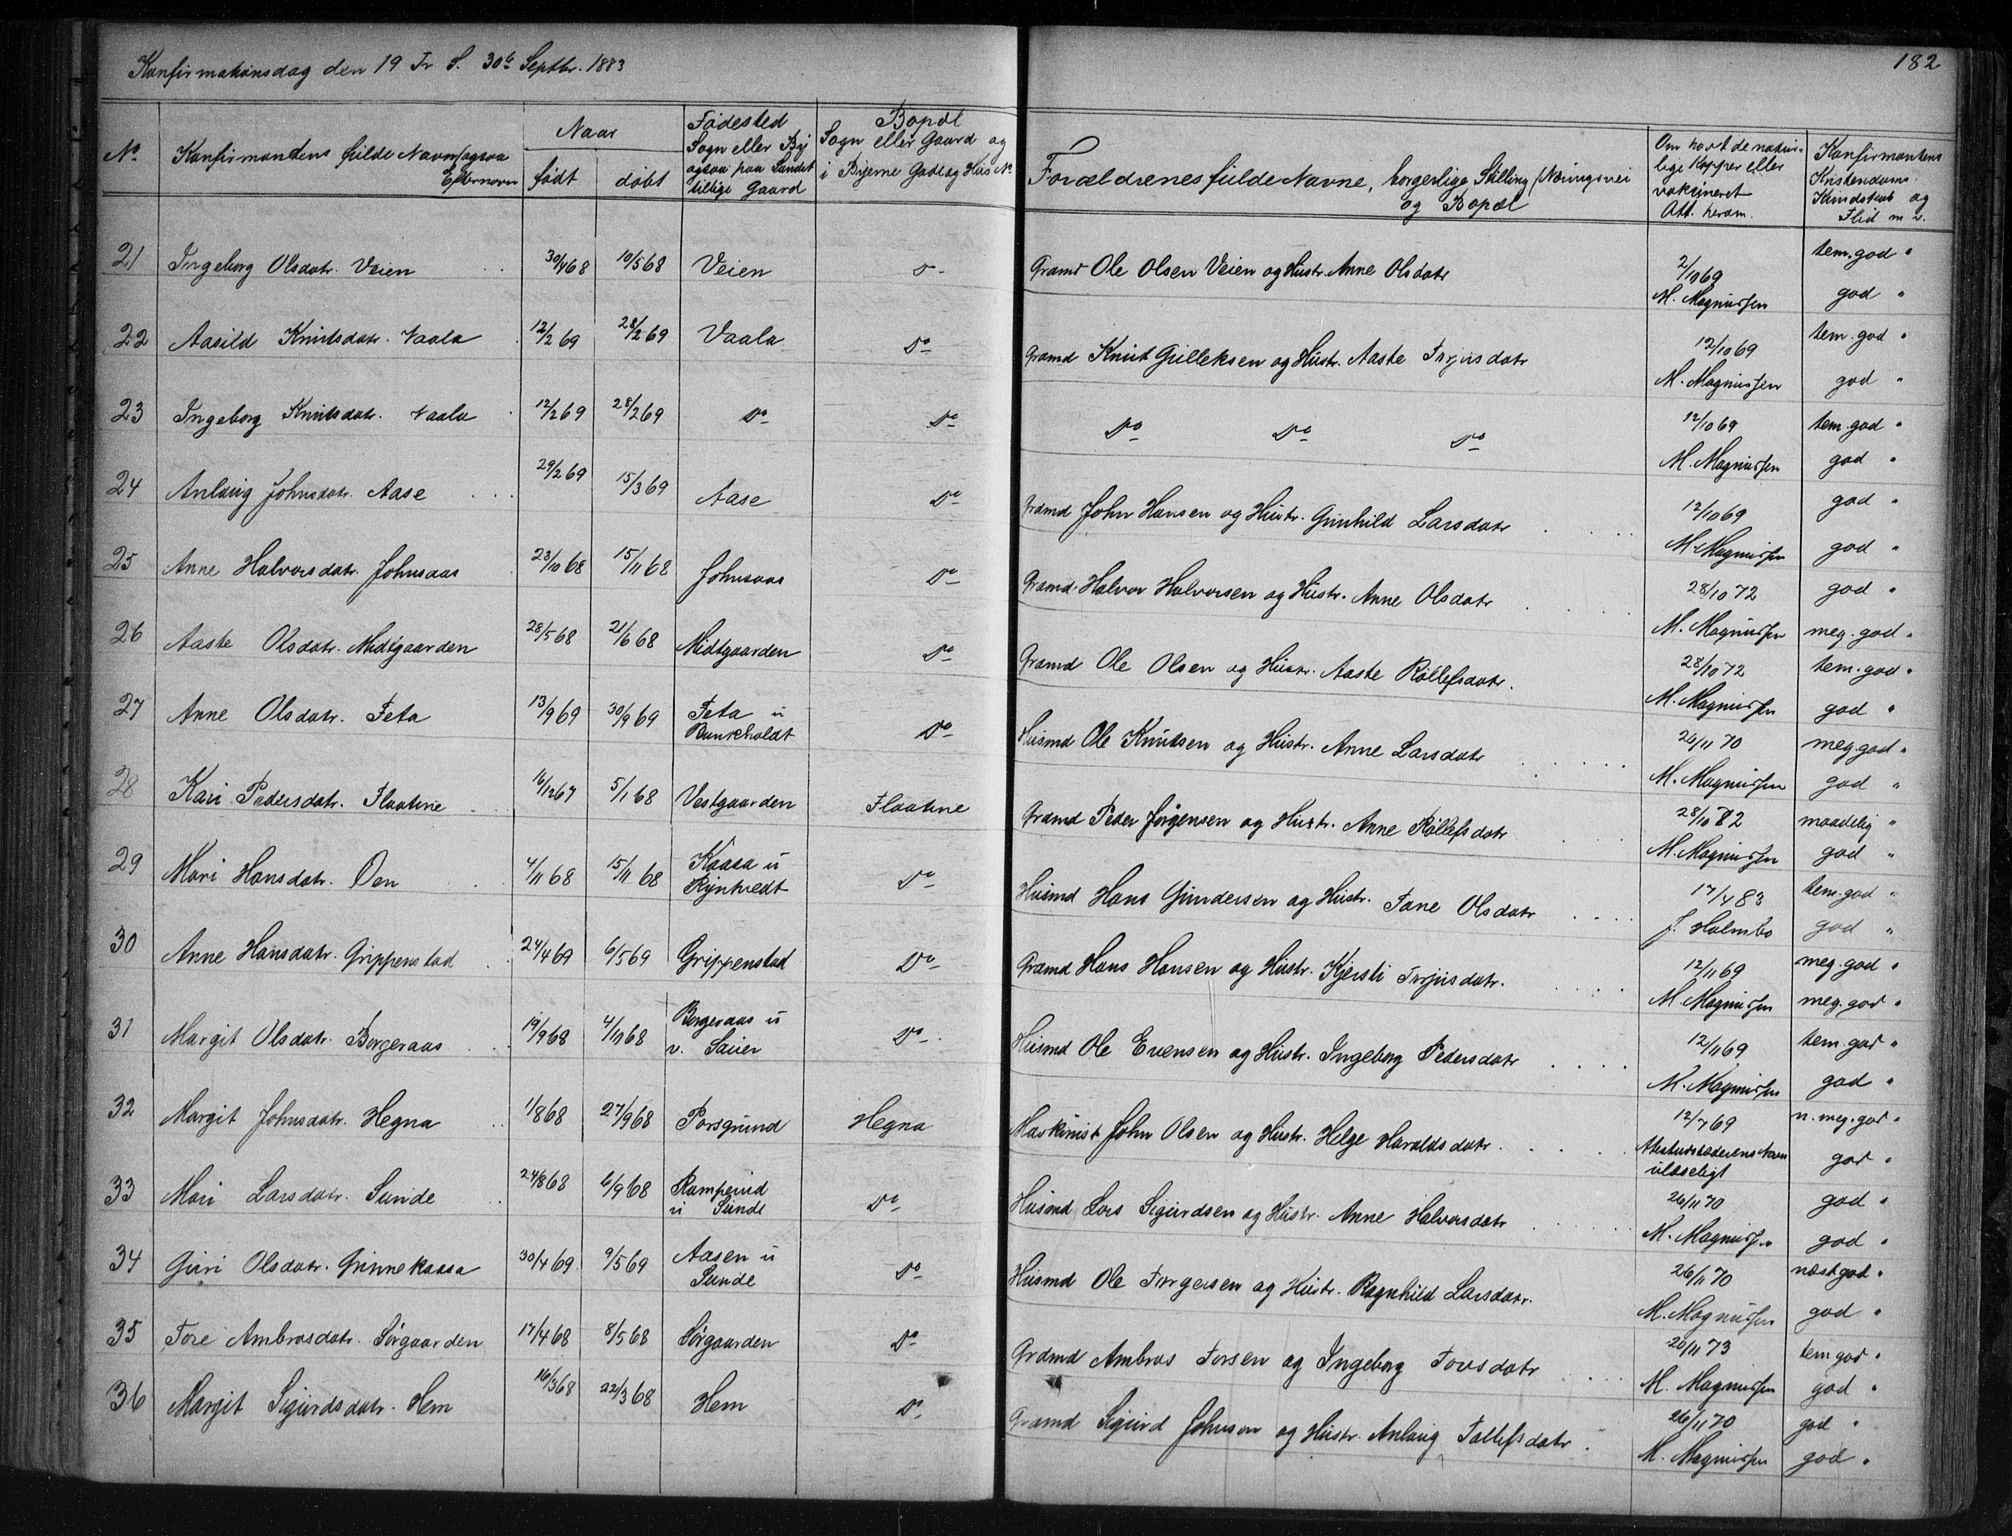 Konfirmationsdag den 19 Tr. S. 30te Septbr. 1883
182
No
Konfirmandens fulde Navn (ogsaa Efternavn
Naar
født
døbt
Fødested
Sogn eller By
ogsaa paa Landet
tillige Gaard
Bopæl
Sogn eller Gaard og
i Byerne Gade og Hus No
Forældrenes fulde Navne, borgerlige Stilling (Næringsvei
og Bopæl
Om havt de natur-
lige Kopper eller
vakcineret
Att. herom.
Konfirmantens
Kristendoms
Kundskab og
Flid m v.
21 Ingeborg Olsdatr. Veien 30/4 68 10/5 68 Veien Do Grdmd Ole Olsen Veien og Hustr. Anne Olsdatr 2/10 69 tem. god "
M. Magnussen god "
22 Aasild Knutsdatr. Vaala 12/2 69 28/2 69 Vaala Do Grdmd Knut Gulleksen og Hustr. Aaste Torjusdatr 12/10 69 tem. god "
M. Magnussen god "
23 Ingeborg Knutsdatr. Vaala 12/2 69 28/2 69 Do Do Do Do Do 12/10 69 tem. god "
M. Magnussen god "
24 Anlaug Johnsdatr. Aase 29/2 69 15/3 69 Aase Do Grdmd John Hansen og Hustr. Gunhild Larsdatr 12/10 69 god "
M. Magnussen god "
25 Anne Halvorsdatr. Johnsaas 23/10 68 15/11 68 Johnsaas Do Grdmd. Halvor Halvorsen og Hustr. Anne Olsdatr 28/10 72 god "
M. Magnussen meg. god "
26 Aaste Olsdatr. Midtgaarden 28/5 68 21/6 68 Midtgaarden Do Grdmd Ole Olsen og Hustr. Aaste Rollefsdatr. 28/10 72 tem. god "
M. Magnussen god "
27 Anne Olsdatr. Teta 13/9 69 30/9 69 Teta u
Bunkholdt Do Husmd Ole Knutsen og Hustr. Anne Larsdatr 26/11 70 meg. god "
M. Magnussen god "
28 Kari Pedersdatr. Flaatene 16/12 67 5/1 68 Vestgaarden Flaatene Grdmd Peder Jørgensen og Hustr. Anne Rollefsdatr 28/10 82 maadelig "
M. Magnussen god "
29 Mari Hansdatr. Øen 4/11 68 15/11 68 Kaasa u
Ryntvedt Do Husmd Hans Gundersen og Hustr. Tone Olsdatr 17/4 83 tem. god "
J. Holmbo god "
30 Anne Hansdatr. Grippenstad 24/4 69 6/5 69 Grippenstad Do Grdmd Hans Hansen og Hustr. Kjersti Torjusdatr. 12/11 69 meg. god "
M. Magnussen meg. god "
31 Margit Olsdatr. Borgeraas 19/9 68 4/10 68 Borgeraas u
v. Sauer Do Husmd Ole Evensen og Hustr. Ingeborg Pedersdatr 12/11 69 tem. god "
M. Magnussen god "
32 Margit Johnsdatr. Hegna 1/8 68 27/9 68 Porsgrund Hegna Maskinist John Olsen og Hustr. Helge Haraldsdatr. 12/7 69 n. meg. god "
Attestudstederens Navn
ulæseligt god "
33 Mari Larsdatr. Sunde 24/8 68 6/9 68 Ramperud
u Sunde Do Husmd Lars Sigurdsen og Hustr. Anne Halvorsdatr 26/11 70 god "
M. Magnussen god "
34 Guri Olsdatr. Grinnekaasa 30/4 69 9/5 69 Aasen u
Sunde Do Husmd Ole Torgersen og Hustr. Ragnhild Larsdatr. 26/11 70 næst god "
M. Magnussen god "
35 Tore Ambrosdatr. Sørgaarden 17/4 68 8/5 68 Sørgaarden Do Grdmd Ambros Torsen og Ingeborg Torsdatr 20/11 73 tem god "
M. Magnussen god "
36 Margit Sigurdsdatr. Hem 16/3 68 22/3 68 Hem Do Grdmd Sigurd Johnsen og Hustr. Anlaug Tollefsdatr 26/11 70 god "
M. Magnussen god "